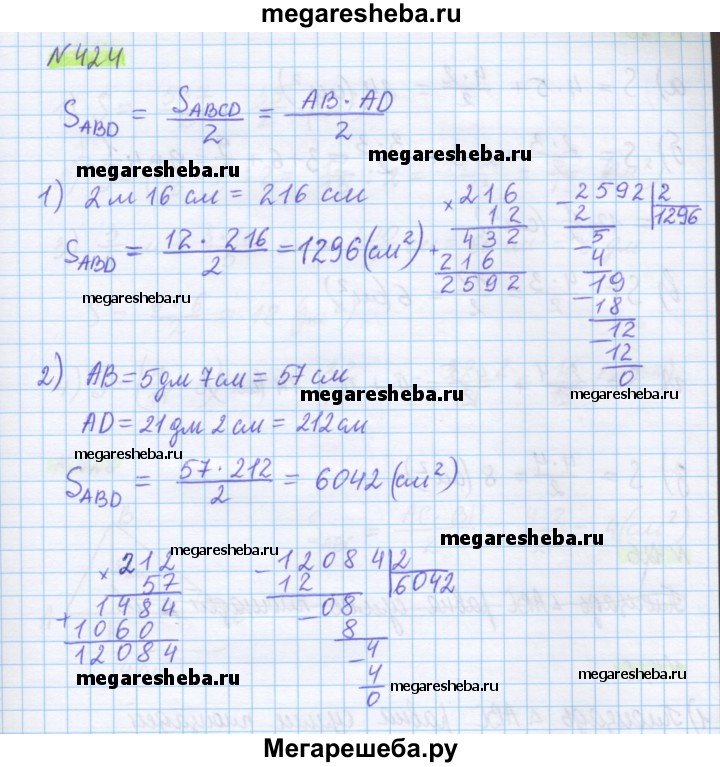 megaresheba.ru
N 424
S_ABD = S_ABCD / 2 = AB · AD / 2
megaresheba.ru
megaresheba.ru
1) 2 м 16 см = 216 см
S_ABD = 12 · 216 / 2 = 1296 (см²)
× 216
12
+ 432
216
2592
- 2592 | 2
2 | 1296
- 5
4
- 19
18
- 12
12
0
megaresheba.ru
2) AB = 5 дм 7 см = 57 см
megaresheba.ru
megaresheba.ru
AD = 21 дм 2 см = 212 см
megaresheba.ru
S_ABD = 57 · 212 / 2 = 6042 (см²)
megaresheba.ru
megaresheba.ru
× 212
57
+ 1484
1060
12084
- 12084 | 2
12 | 6042
- 08
8
- 4
4
0
megaresheba.ru
megaresheba.ru
Мегарешеба.ру